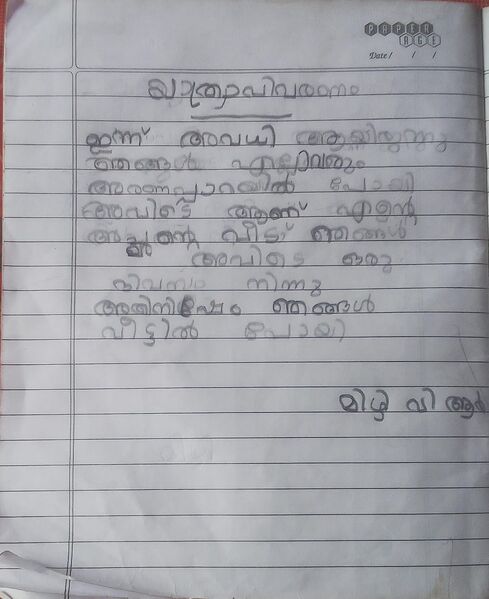 PAPER
AGE
Date / / /
യാത്രാവിവരണം
ഇന്ന് അവധി ആയിരുന്നു
ഞങ്ങൾ എല്ലാവരും
അരണപ്പാറയിൽ പോയി
അവിടെ ആണ് എന്റെ
അച്ഛന്റെ വീട് ഞങ്ങൾ
അവിടെ ഒരു
ദിവസം നിന്നു
അതിനിഷേം ഞങ്ങൾ
വീട്ടിൽ പോയി
മിഴി വി ആർ